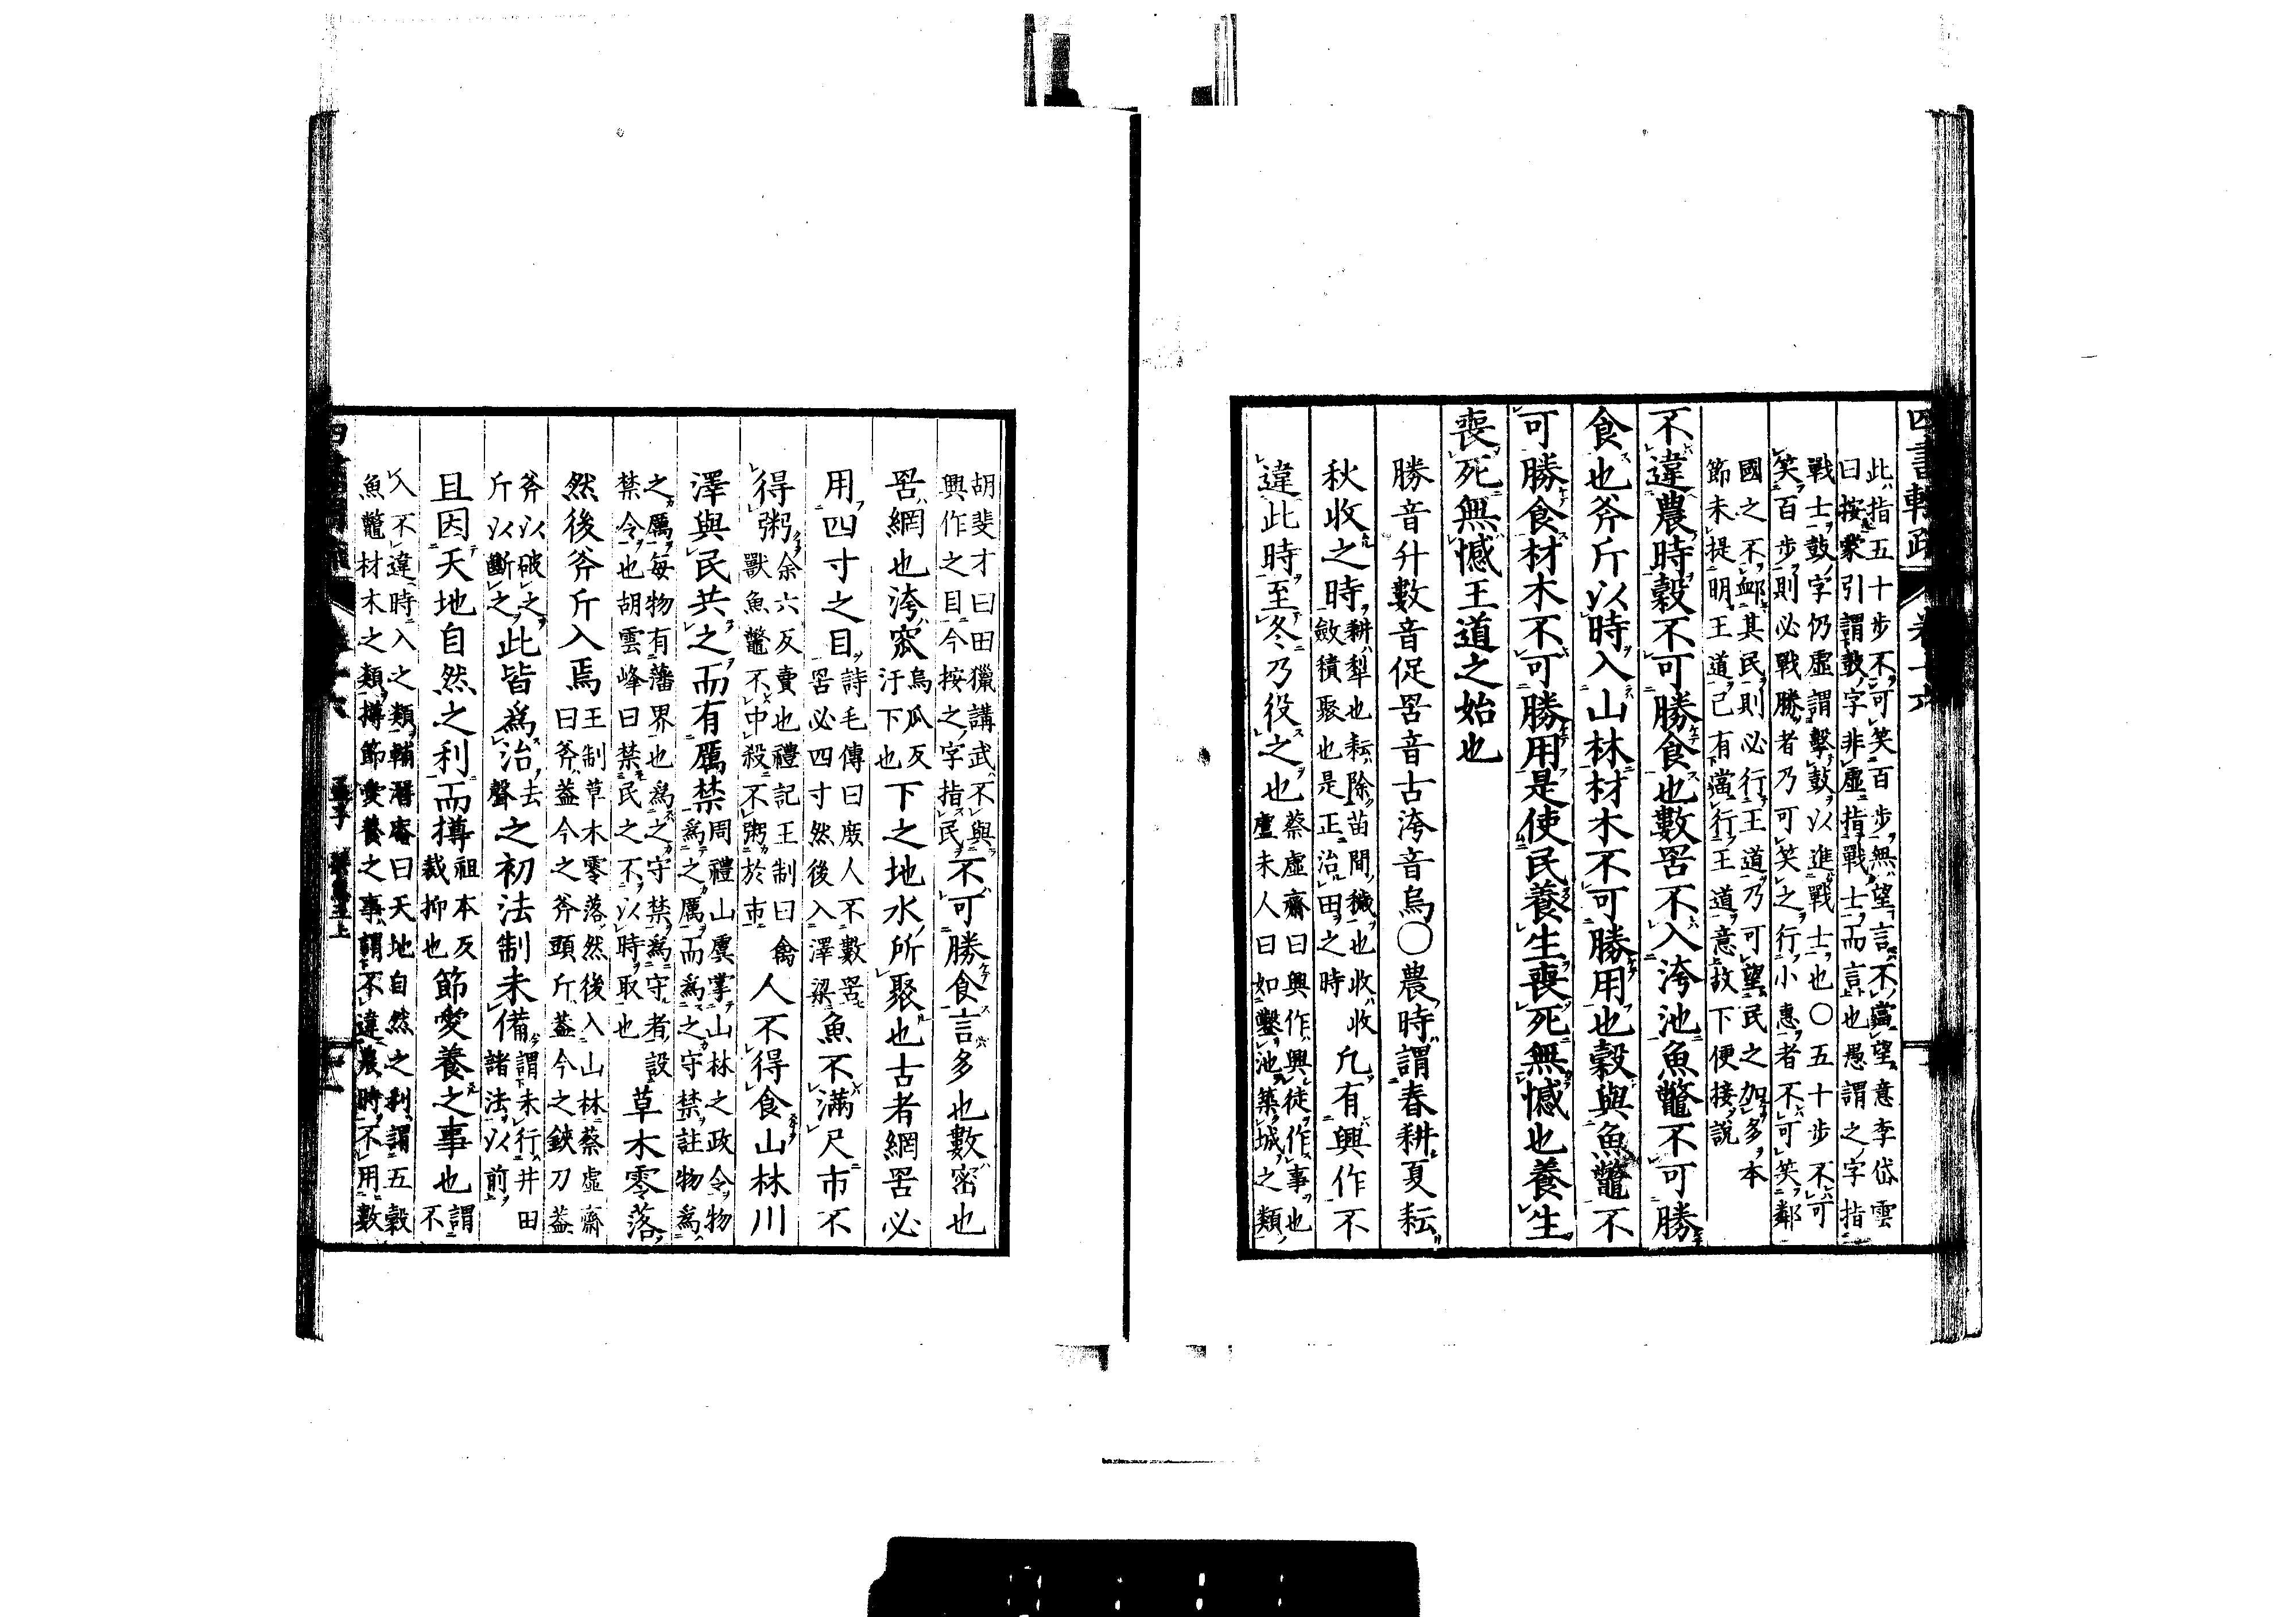 四書輯疏 卷十六
此指五十步不可笑百步無望言不當望意李岱雲
曰按蒙引謂鼓字非虛指戰士而言也愚謂之字指
戰士鼓字仍虛謂擊鼓以進戰士也○五十步不可
笑百步則必戰勝者乃可笑之行小惠者不可笑鄰
國之不䘏其民則必行王道乃可望民之加多本
節未提明王道已有當行王道意故下便接說
不違農時穀不可勝食也數罟不入洿池魚鼈不可勝
食也斧斤以時入山林材木不可勝用也穀與魚鼈不
可勝食材木不可勝用是使民養生喪死無憾也養生
喪死無憾王道之始也
勝音升數音促罟音古洿音烏○農時謂春耕夏耘
秋收之時耕犂也耘除苗間穢也收收斂積聚也是正治田之時凡有興作不
違此時至冬乃役之也蔡虛齋曰興作興徒作事也盧未人曰如鑿池築城之類
胡斐才曰田獵講武不與興作之目今按之字指民不可勝食言多也數密也
罟網也洿窊烏瓜反汙下也下之地水所聚也古者網罟必
用四寸之目詩毛傳曰庶人不數罟罟必四寸然後入澤梁魚不滿尺市不
得粥余六反賣也禮記王制曰禽獸魚鼈不中殺不粥於市人不得食山林川
澤與民共之而有厲禁周禮山虞掌山林之政令物爲之厲而爲之守禁註物爲
之厲每物有藩界也爲之守禁爲守者設禁令也胡雲峰曰禁民之不以時取也草木零落
然後斧斤入焉王制草木零落然後入山林蔡虛齋曰斧蓋今之斧頭斤蓋今之鋏刀蓋
斧以破之斤以斷之此皆爲治去聲之初法制未備謂未行井田諸法以前
且因天地自然之利而撙祖本反裁抑也節愛養之事也謂不
入不違時入之類輔潛庵曰天地自然之利謂五穀
魚鼈材木之類撙節愛養之事謂不違農時不用數